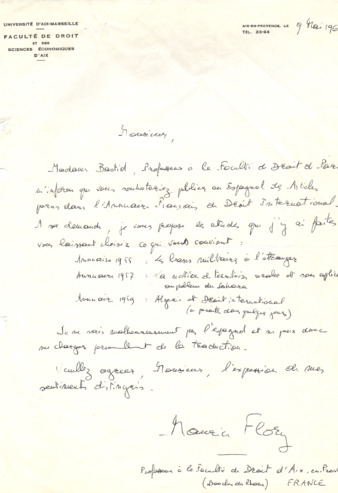 UNIVERSITÉ D'AIX-MARSEILLE
FACULTÉ DE DROIT
ET DES
SCIENCES ÉCONOMIQUES
D'AIX
AIX-EN-PROVENCE, LE 9 Mai
TÉL. 23-83
Monsieur,
Madame Bastid, Professeur à la Faculté de Droit de
m'informe que vous souhaiteriez publier en Espagnol des Articles
parus dans l'Annuaire Français de Droit International.
A sa demande, je vous propose les études que j'y ai faites
vous laissant choisir ce qui vous convient :
Annuaire 1955 : Les bases militaires à l'étranger
Annuaire 1957 : La notion de territoire et son
au problème du Sahara
Annuaire 1959 : Algérie et Droit international
(à paraître dans quelques jours)
Je ne sais malheureusement pas l'espagnol et ne puis donc
me charger personnellement de la traduction.
Veuillez agréer, Monsieur, l'expression de mes
sentiments distingués.
Maurice Flory
Professeur à la Faculté de Droit d'Aix-en-
(Bouches du Rhône) FRANCE